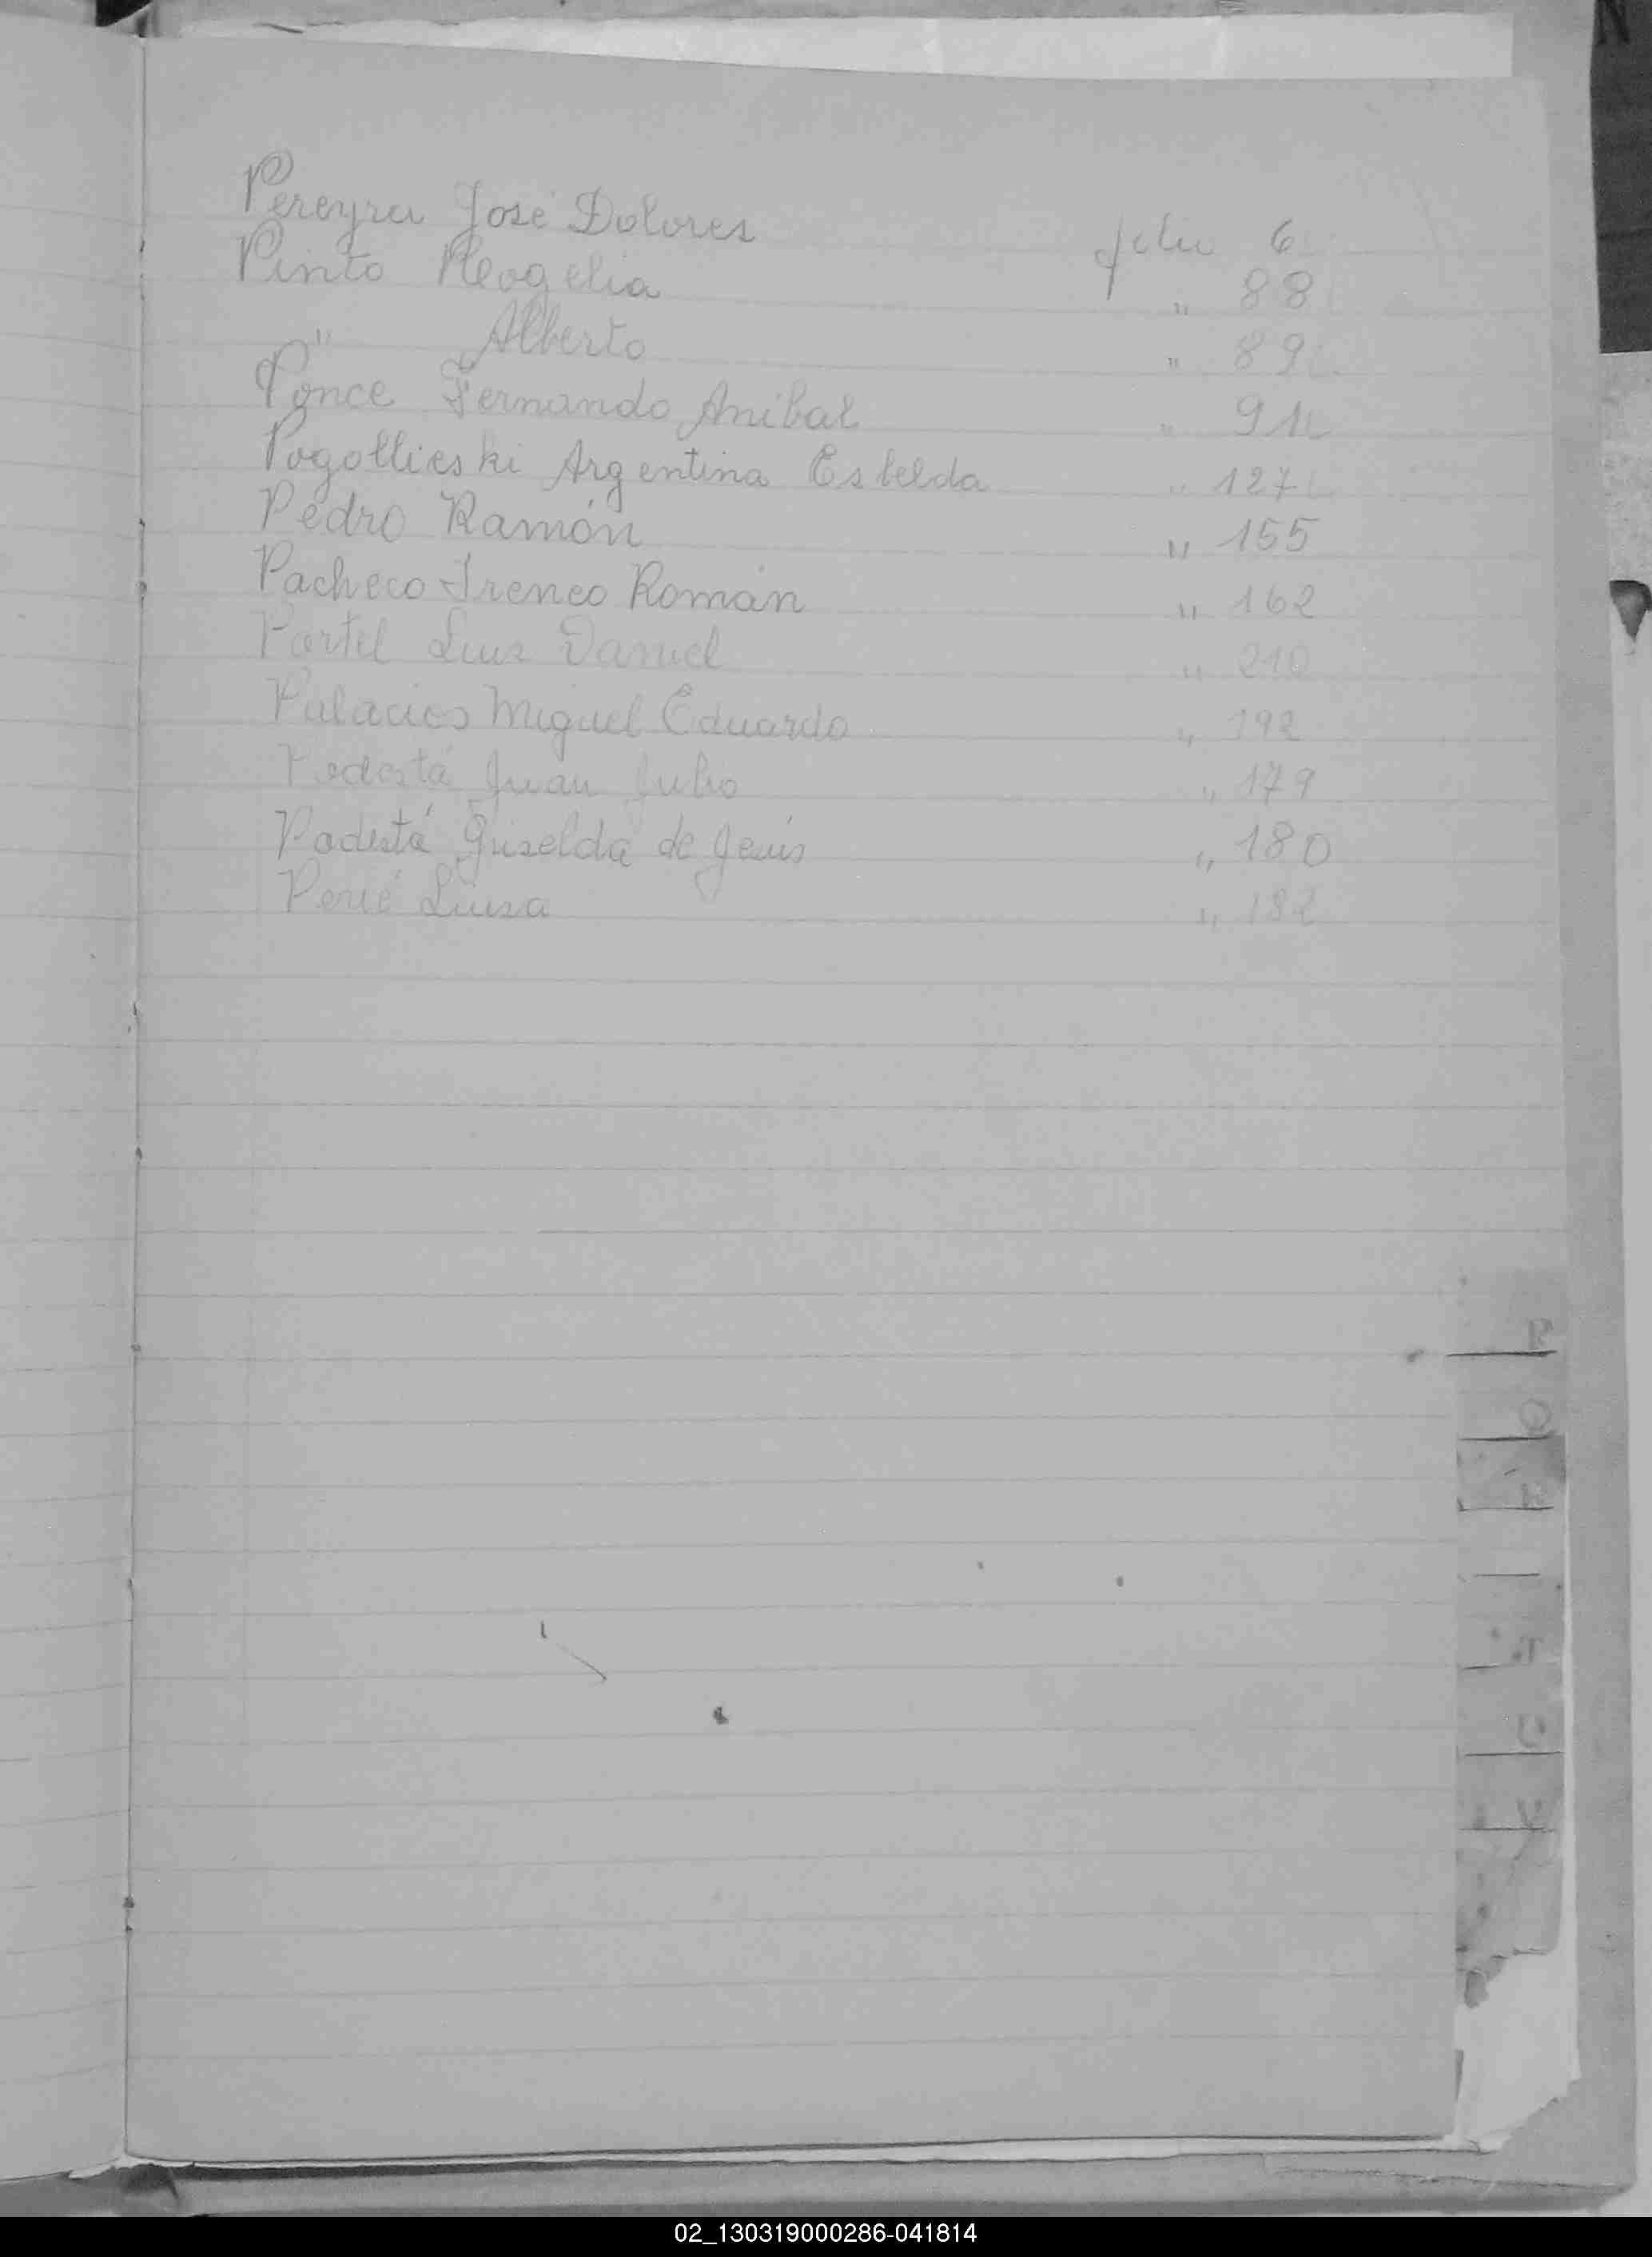 Pereyra José Dolores folio 6
Pinto Rogelia " 88
" Alberto " 89
Ponce Fernando Anibal " 91
Argentina Estelda " 127
Pedro Ramón " 155
Pacheco Ireneo Román " 162
Portel Luis Daniel " 210
Palacios Miguel Eduardo " 192
Podestá Juan Julio " 179
Podestá Griselda de Jesús " 180
Luisa " 182
R
Q
T
U
V
02_130319000286-041814